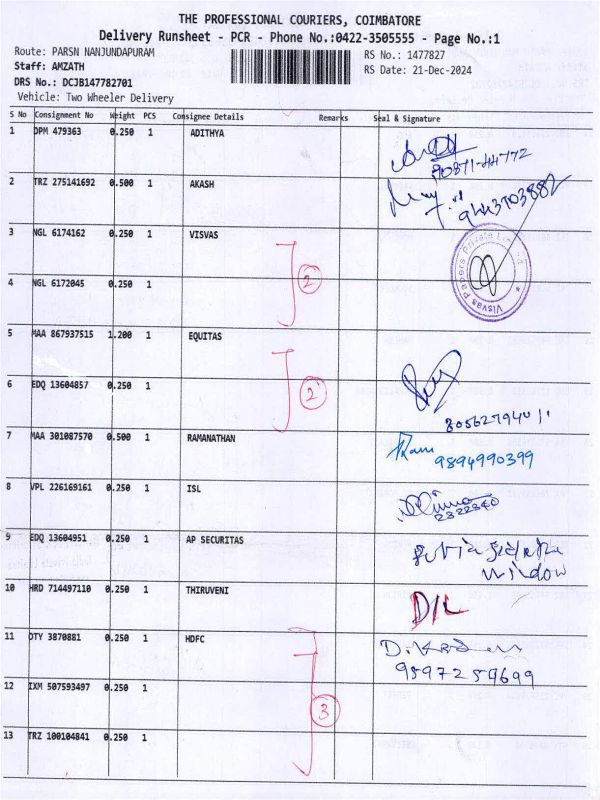 THE PROFESSIONAL COURIERS, COIMBATORE
Delivery Runsheet - PCR - Phone No.:0422-3505555 - Page No.:1
Route: PARSN NANJUNDAPURAM
RS No.: 1477827
Staff: AMZATH
RS Date: 21-Dec-2024
DRS No.: DCJB147782701
Vehicle: Two Wheeler Delivery
S No Consignment No Weight PCS Consignee Details Remarks Seal & Signature
1 DPM 479363 0.250 1 ADITHYA
90871-44772
2 TRZ 275141692 0.500 1 AKASH
9443703882
3 NGL 6174162 0.250 1 VISVAS
Visvas Papers Private Limited
2
4 NGL 6172045 0.250 1
5 MAA 867937515 1.200 1 EQUITAS
2
6 EDQ 13604857 0.250 1
7 MAA 301087570 0.500 1 RAMANATHAN
Ram
9894990399
8 VPL 226169161 0.250 1 ISL
2322340
9 EDQ 13604951 0.250 1 AP SECURITAS
window
10 HRD 714497110 0.250 1 THIRUVENI
D/L
11 OTY 3870881 0.250 1 HDFC
9597259699
12 IXM 507593497 0.250 1
3
13 TRZ 100104841 0.250 1